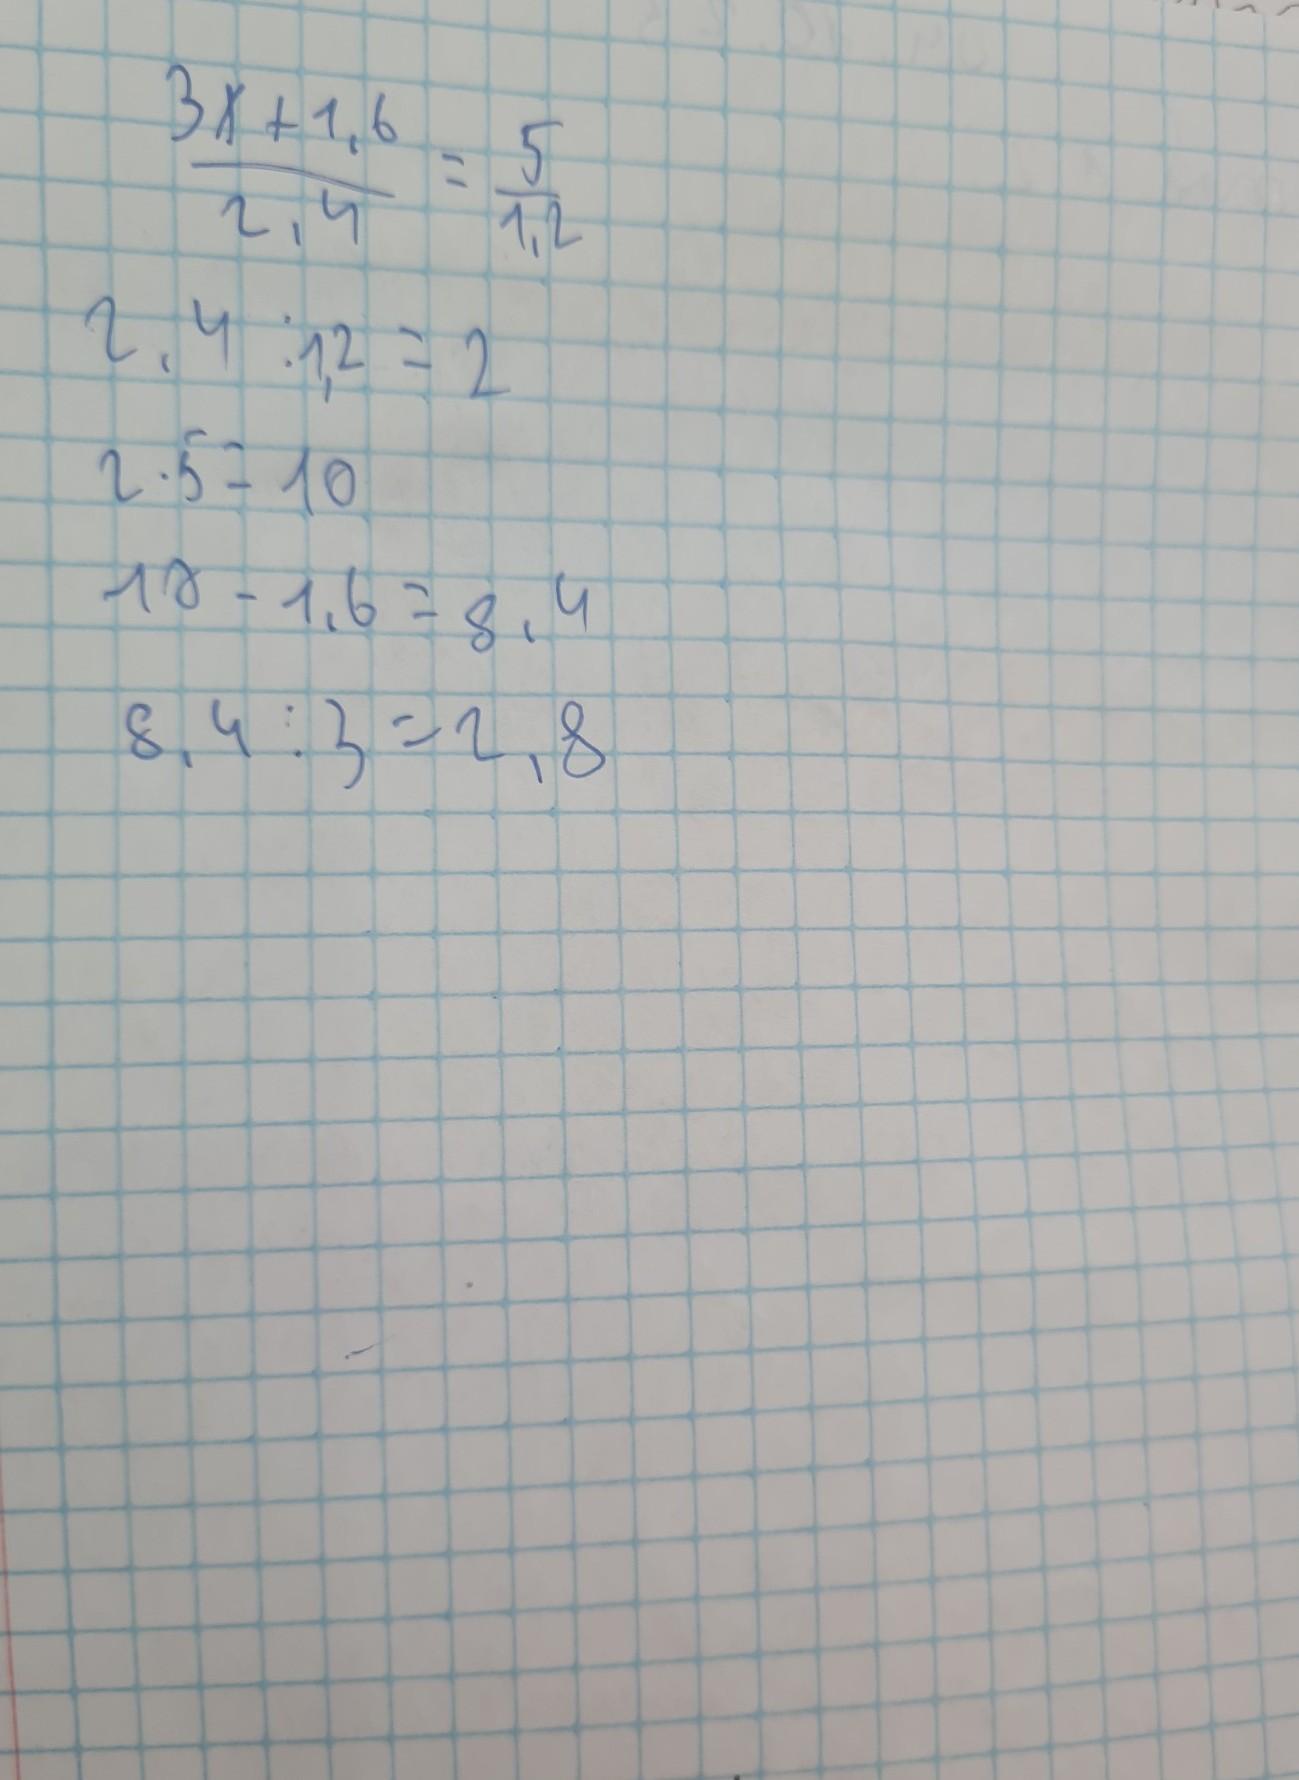 3x+1,6/2,4 = 5/1,2
2,4 :1,2 = 2
2·5= 10
10 - 1,6 = 8,4
8,4 : 3 = 2,8